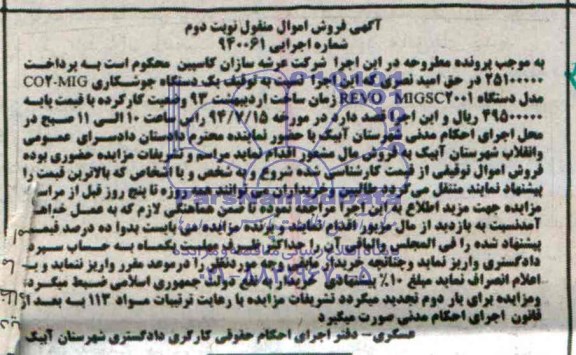 آگهی فروش اموال منقول نوبت دوم
شماره اجرایی ۹۴۰۰۶۱
به موجب پرونده مطروحه در این اجرا شرکت عرشه سازان کاسپین محکوم است به پرداخت
۲۵۱۰۰۰۰۰ در حق امید نصری که این اجرا نسبت به توقیف یک دستگاه جوشکاری CO۲-MIG
مدل دستگاه REVO MIGSC۲۰۰۱ زمان ساخت اردیبهشت ۹۳ وضعیت کارکرده با قیمت پایه
۴۹۵۰۰۰۰۰ ریال و این اجرا قصد دارد در مورخه ۹۴/۷/۱۵ راس ساعت ۱۰ الی ۱۱ صبح در
محل اجرای احکام مدنی شهرستان آبیک با حضور نماینده محترم دادستان دادسرای عمومی
وانقلاب شهرستان آبیک به فروش مال مذکور اقدام نماید مراسم و تشریفات مزایده حضوری بوده
فروش اموال توقیفی از قیمت کارشناسی شده شروع و به شخص و یا اشخاص که بالاترین قیمت را
پیشنهاد نمایند منتقل می گردد طالبین و خریداران می توانند همه روزه تا پنج روز قبل از مراسم
مزایده جهت مزید اطلاع به این اجرا مراجعه نموده تا ضمن هماهنگی لازم که به عمل خواهد
آمدنسبت به بازدید از مال مزبور اقدام نمایند برنده مزایده می بایست بدوا ده درصد قیمت
پیشنهاد شده را فی المجلس والباقی آن را حداکثر ظرف مهلت یکماه به حساب سپرده
دادگستری واریز نماید وچنانچه خریدار الباقی را درموعد مقرر واریز ننماید و یا
اعلام انصراف نماید مبلغ ۱۰٪ پیشنهادی خریدار به نفع دولت جمهوری اسلامی ضبط میگردد
ومزایده برای بار دوم تجدید میگردد تشریفات مزایده با رعایت ترتیبات مواد ۱۱۳ به بعد
قانون اجرای احکام مدنی صورت میگیرد
عسگری- دفتر اجرای احکام حقوقی کارگری دادگستری شهرستان آبیک